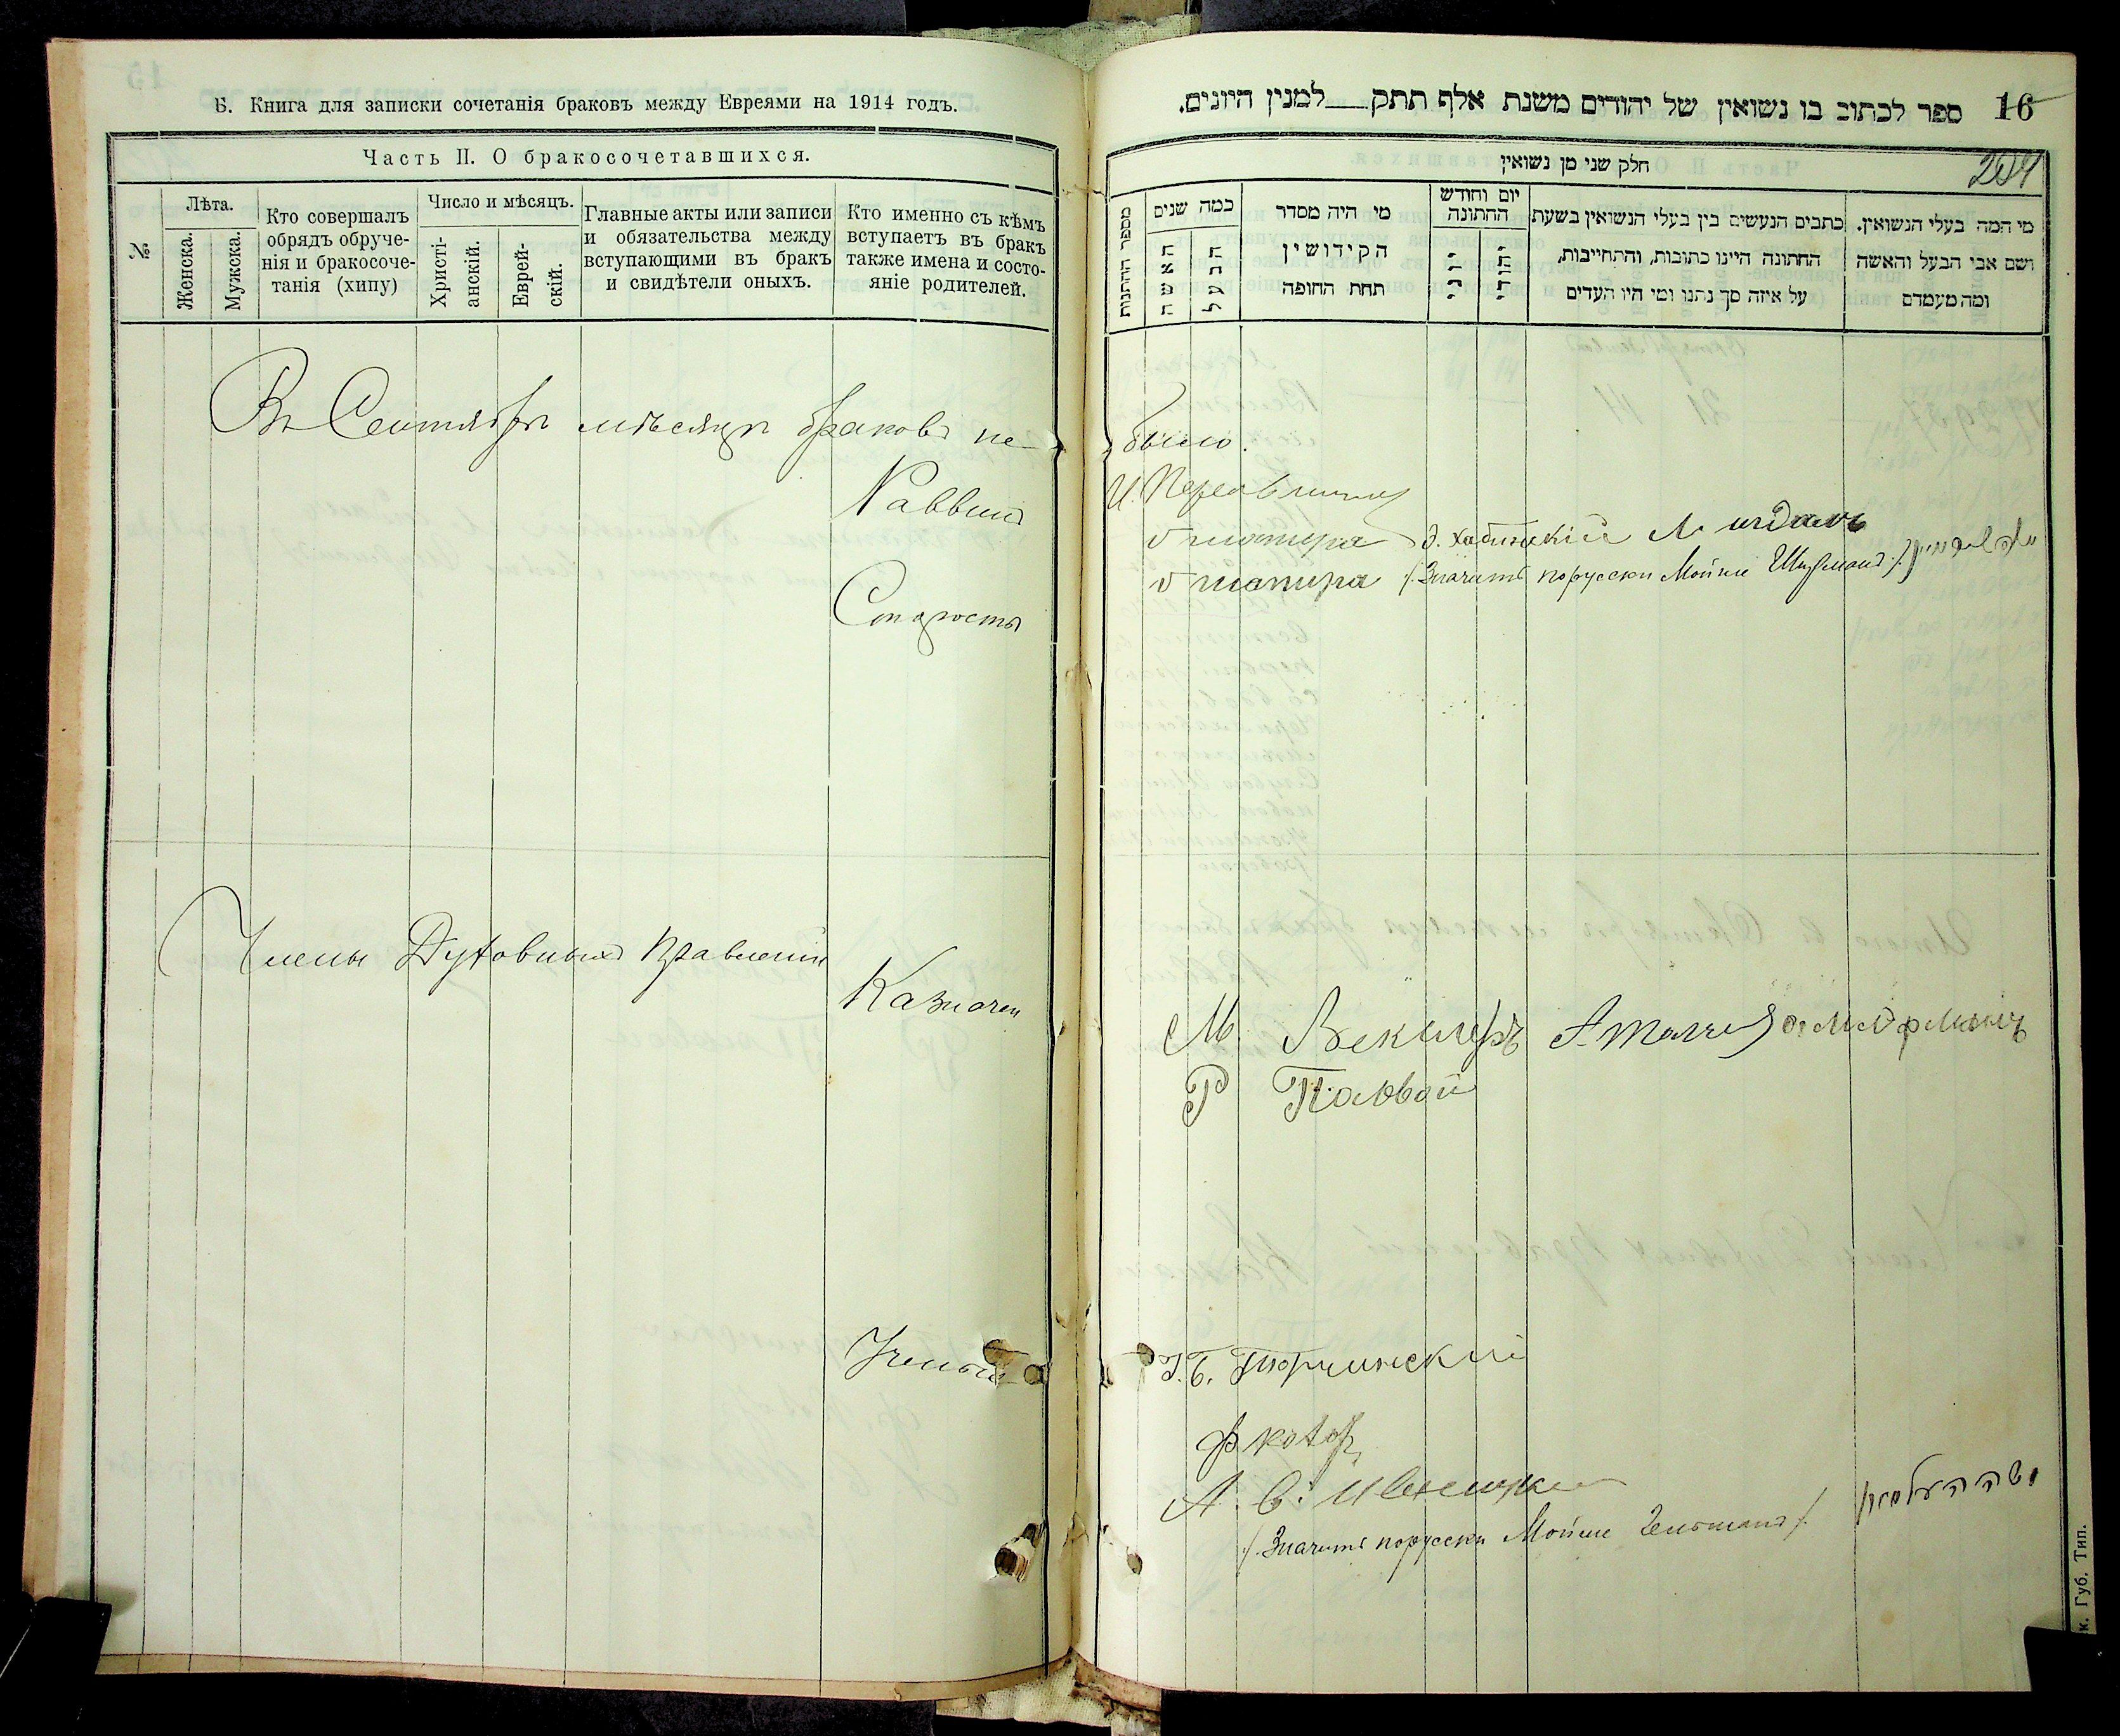 Б. Книга для записки сочетанія браковъ между Евреями на 1914 годъ.
Часть II. О бракосочетавшихся.
№
Лѣта.
Женска.
Мужска.
Кто совершалъ
обрядъ обруче-
нія и бракосоче-
танія (хипу)
Число и мѣсяцъ.
Христі-
анскій.
Еврей-
скій.
Главные акты или записи
и обязательства между
вступающими въ бракъ
и свидѣтели оныхъ.
Кто именно съ кѣмъ
вступаетъ въ бракъ
также имена и состо-
яніе родителей.
Въ Сентябрѣ мѣсяцѣ браковъ не
Раввинъ
Старосты
Члены Духовныхъ Правленій
Казначеи
Ученые
ספר לכתוב בו נשואין של יהודים משנת אלף תתק למנין היונים.
16
חלק שני מן נשואין
264
מספר החתונות
כמה שנים
האשה
הבעל
מי היה מסדר
הקידושין
תחת החופה
יום וחודש
החתונה
יוני
יהודי
כתבים הנעשים בין בעלי הנשואין בשעת
החתונה היינו כתובות, והתחייבות,
על איזה סך נתנו ומי היו העדים
מי המה בעלי הנשואין.
ושם אבי הבעל והאשה
ומה מעמדם
было.
И.
шапира
шапира /. Значитъ порусски Мойше Шухманъ ./
М. Векслеръ
Р
Г. Б. Торчинскій
Ф
А. С.
/. Значитъ порусски Мойше Гельманъ ./
к. Губ. Тип.